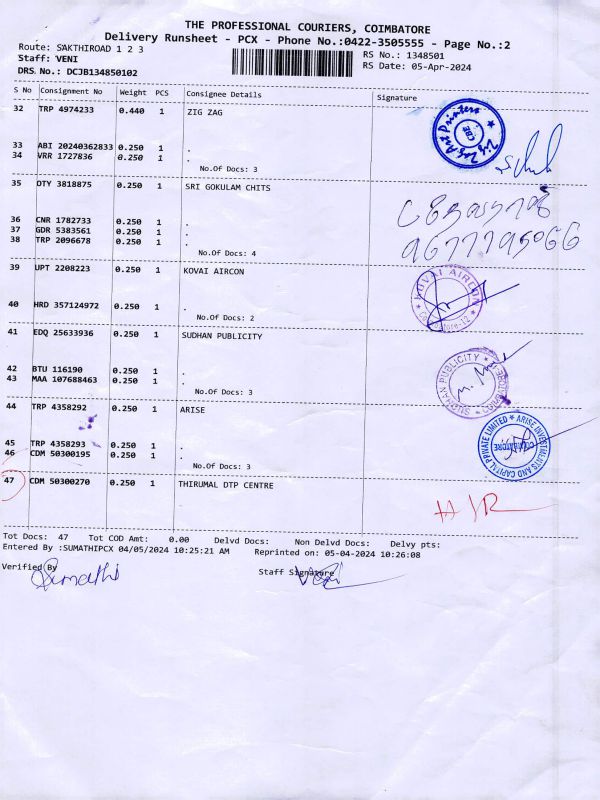 THE PROFESSIONAL COURIERS, COIMBATORE
Delivery Runsheet - PCX - Phone No.:0422-3505555 - Page No.:2
Route: SAKTHIROAD 1 2 3
RS No.: 1348501
Staff: VENI
RS Date: 05-Apr-2024
DRS. No.: DCJB134850102
S No Consignment No Weight PCS Consignee Details Signature
32 TRP 4974233 0.440 1 ZIG ZAG
Zig Zag Art Printers CBE
33 ABI 20240362833 0.250 1 .
34 VRR 1727836 0.250 1 .
No.Of Docs: 3
35 DTY 3818875 0.250 1 SRI GOKULAM CHITS
36 CNR 1782733 0.250 1 .
37 GDR 5383561 0.250 1 .
38 TRP 2096678 0.250 1 .
No.Of Docs: 4
39 UPT 2208223 0.250 1 KOVAI AIRCON
KOVAI AIRCON
40 HRD 357124972 0.250 1 .
No.Of Docs: 2
41 EDQ 25633936 0.250 1 SUDHAN PUBLICITY
SUDHAN PUBLICITY
42 BTU 116190 0.250 1 .
43 MAA 107688463 0.250 1 .
No.Of Docs: 3
44 TRP 4358292 0.250 1 ARISE
ARISE INVESTMENTS AND CAPITAL PRIVATE LIMITED COIMBATORE
45 TRP 4358293 0.250 1 .
46 CDM 50300195 0.250 1 .
No.Of Docs: 3
47 CDM 50300270 0.250 1 THIRUMAL DTP CENTRE
Tot Docs: 47 Tot COD Amt: 0.00 Delvd Docs: Non Delvd Docs: Delvy pts:
Entered By :SUMATHIPCX 04/05/2024 10:25:21 AM Reprinted on: 05-04-2024 10:26:08
Verified By
Sumathi
Staff Signature